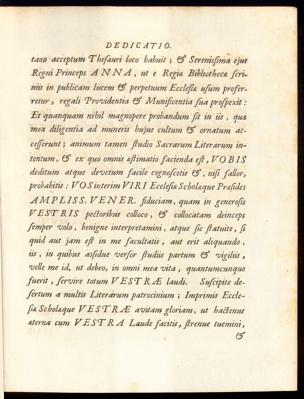 DEDICATIO.
tano acceptum Thesauri loco habuit; & Serenissima ejus
Regni Princeps ANNA, ut e Regia Bibliotheca scri-
niis in publicam lucem & perpetuum Ecclesiæ usum profer-
retur, regali Providentia & Munificentia sua prospexit:
Et quanquam nihil magnopere probandum sit in iis, quæ
mea diligentia ad muneris hujus cultum & ornatum ac-
cesserunt; animum tamen studio Sacrarum Literarum in-
tentum, & ex quo omnis æstimatio facienda est, VOBIS
deditum atque devotum facile cognoscetis &, nisi fallor,
probabitis: VOS interim VIRI Ecclesiæ Scholæque Præsides
AMPLISS. VENER. fiduciam, quam in generosis
VESTRIS pectoribus colloco, & collocatam deinceps
semper volo, benigne interpretamini, atque sic statuite, si
quid aut jam est in me facultatis, aut erit aliquando,
iis, in quibus assidue versor studiis partum & vigiliis,
velle me id, ut debeo, in omni mea vita, quantumcunque
fuerit, servire totum VESTRÆ laudi. Suscipite de-
sertum a multis Literarum patrocinium; Imprimis Eccle-
siæ Scholæque VESTRÆ avitam gloriam, ut hactenus
æterna cum VESTRA Laude facitis, strenue tuemini,
&